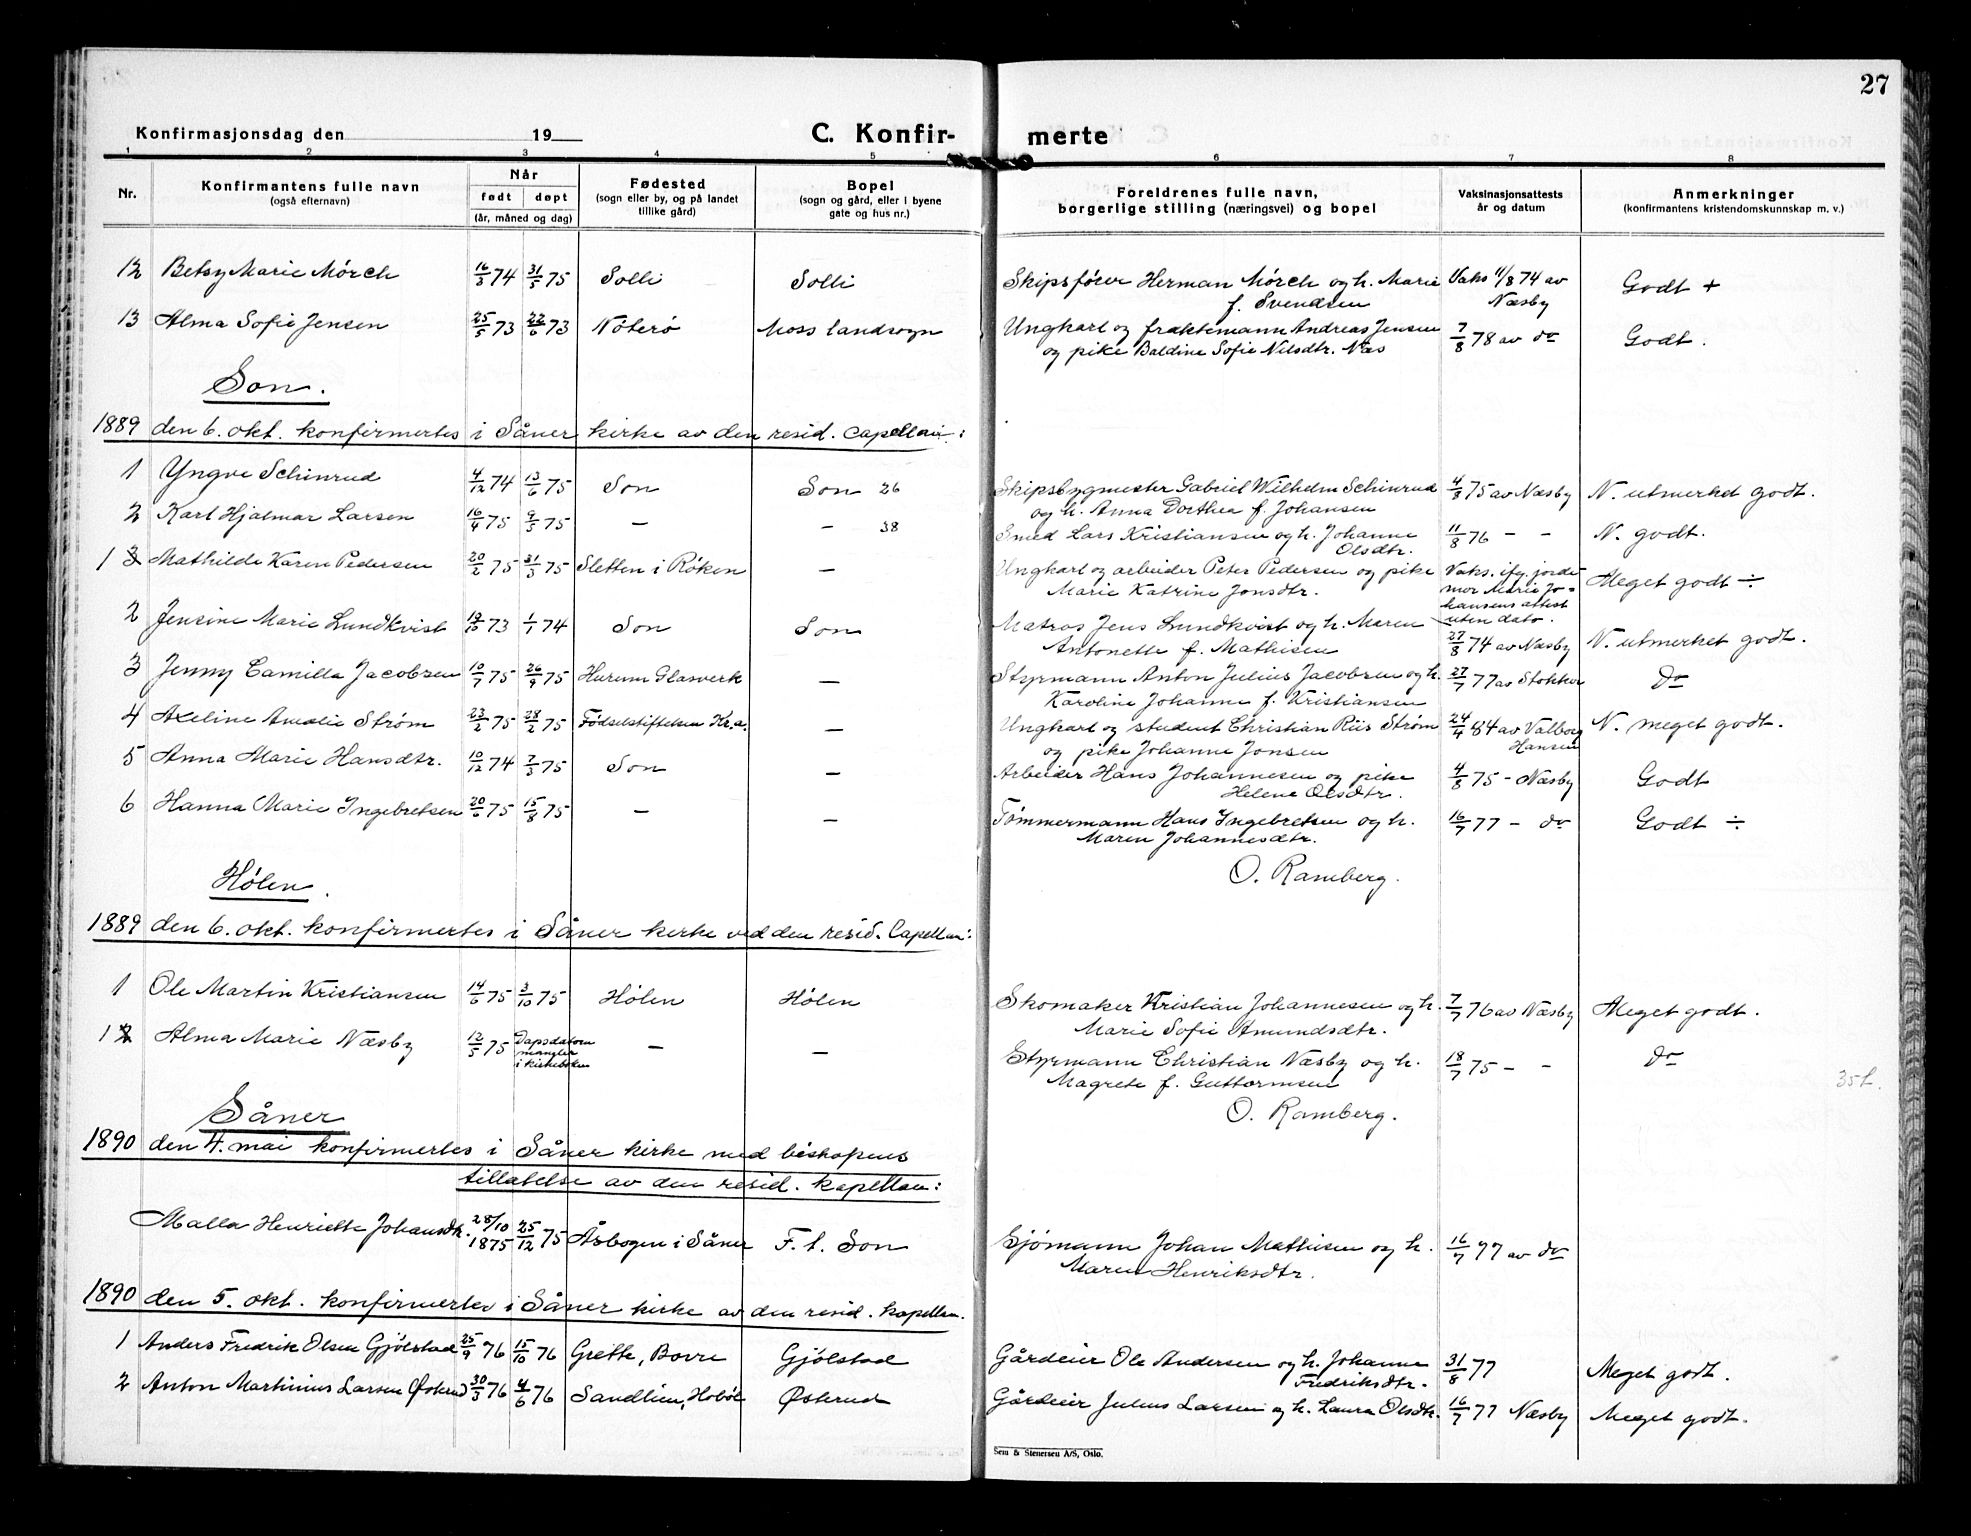 27
Konfirmasjonsdag den 19
C. Konfir- merte
1 2 3 4 5 6 7 8
Nr. Konfirmantens fulle navn (også efternavn) Når født døpt (år, måned og dag) Fødested (sogn eller by, og på landet tillike gård) Bopel (sogn og gård, eller i byene gate og hus nr.) Foreldrenes fulle navn, borgerlige stilling (næringsvei) og bopel Vaksinasjonsattests år og datum Anmerkninger (konfirmantens kristendomskunnskap m. v.)
12 Betsy Marie Mørch 16/3 74 31/5 75 Solli Solli Skipsfører Herman Mørch og h. Marie f. Svendsen Vaks 11/8 74 av Næsby Godt +
13 Alma Sofie Jensen 25/5 73 22/6 73 Nøterø Moss landsogn Ungkarl og fraktemann Andreas Jensen og pike Baldine Sofie Nilsdtr. Næs 7/8 78 av do Godt.
Son.
1889 den 6. okt. konfirmertes i Såner kirke av den resid. Capellan:
1 Yngve Schinrud 4/12 74 13/6 75 Son Son 26 Skipsbygmester Gabriel Wilhelm Schinrud og h. Anna Dorthea f. Johansen 4/8 75 av Næsby N. utmerket godt.
2 Karl Hjalmar Larsen 16/4 75 9/5 75 — — 38 Smed Lars Kristiansen og h. Johanne Olsdtr. 11/8 76 - - N. godt.
1 3 Mathilde Karen Pedersen 20/2 75 31/3 75 Sletten i Røken — Ungkarl og arbeider Peter Pedersen og pike Marie Katrine Jonsdtr. Vaks. ifg. jordemor Marie Johansens attest uten dato. Meget godt ÷
2 Jensine Marie Lundkvist 19/10 73 1/1 74 Son Son Matros Jens Lundkvist og h. Maren Antonette f. Mathisen 27/8 74 av Næsby N. utmerket godt.
3 Jenny Camilla Jacobsen 10/7 75 26/9 75 Hurum Glasverk — Styrmann Anton Julius Jacobsen og h. Karoline Johanne f. Kristiansen 27/7 77 av Stokker do
4 Axeline Amalie Strøm 23/2 75 28/2 75 Fødselstiftelsen Kr.a. — Ungkarl og student Christian Riis Strøm og pike Johanne Jonsen 24/4 84 av Valborg Hansen N. meget godt.
5 Anna Marie Hansdtr. 10/12 74 7/3 75 Son — Arbeider Hans Johannesen og pike Helene Olsdtr. 4/8 75 - Næsby Godt
6 Hanna Marie Ingebretsen 20/6 75 15/8 75 — — Tømmermann Hans Ingebretsen og h. Maren Johannesdtr. 16/7 77 - do Godt ÷
O. Ramberg.
Hølen.
1889 den 6. okt. konfirmertes i Såner kirke ved den resid. Capellan:
1 Ole Martin Kristiansen 14/6 75 3/10 75 Hølen Hølen Skomaker Kristian Johannesen og h. Marie Sofie Amundsdtr. 7/7 76 av Næsby Meget godt.
1 2 Alma Marie Næsby 12/5 75 Dapsdatoen mangler i kirkeboken — — Styrmann Christian Næsby og h. Magrete f. Guttormsen 18/7 75 - - do
O. Ramberg.
Såner
1890 den 4. mai konfirmertes i Såner kirke med biskopens
tillatelse av den resid. kapellan:
Malla Henriette Johansdtr. 28/10 1875 25/12 75 Åsbogen i Såner F. t. Son Sjømann Johan Mathisen og h. Maren Henriksdtr. 16/7 77 av do
1890 den 5. okt. konfirmertes i Såner kirke av den resid. kapellan.
1 Anders Fredrik Olsen Gjølstad 25/9 76 15/10 76 Grette, Bovre Gjølstad Gårdeier Ole Andersen og h. Johanne Fredriksdtr. 31/8 77 Meget godt.
2 Anton Martinius Larsen Østerud 30/3 76 4/6 76 Sandlien, Hobøl Østerud Gårdeier Julius Larsen og h. Laura Olsdtr. 16/7 77 Næsby Meget godt.
Sem & Stenersen A/S, Oslo.